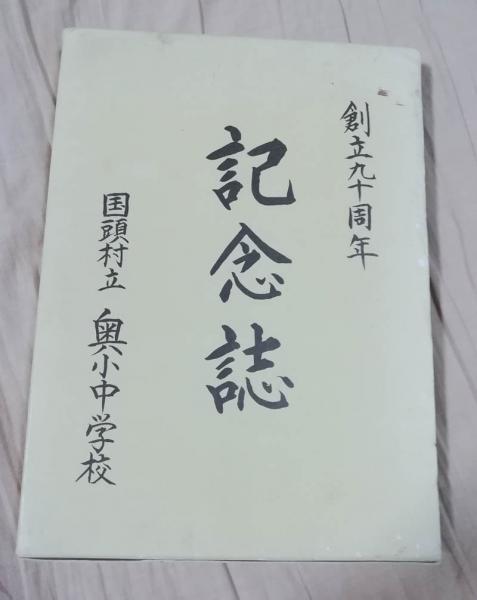 創立九十周年
記念誌
国頭村立 奥小中学校